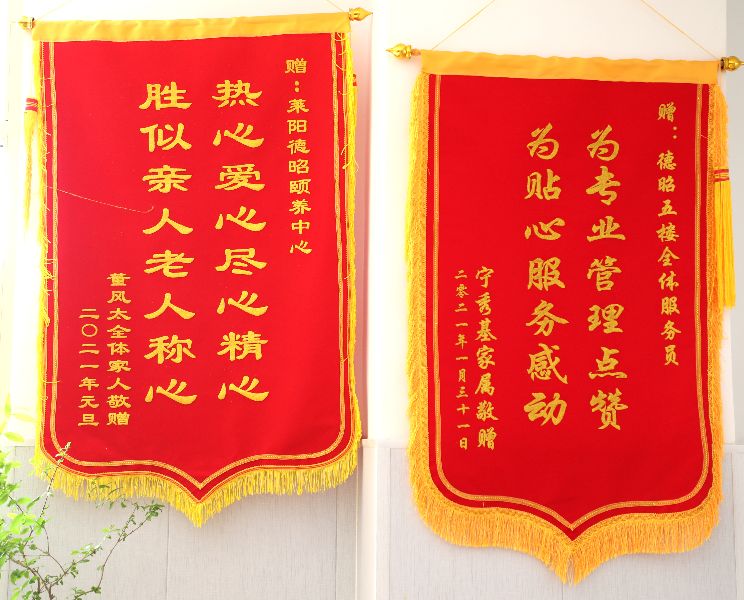 赠：莱阳德昭颐养中心
热心爱心尽心精心
胜似亲人老人称心
董风太全体家人敬赠
二〇二一年元旦
赠：德昭五楼全体服务员
为专业管理点赞
为贴心服务感动
宁秀基家属敬赠
二零二一年一月三十一日